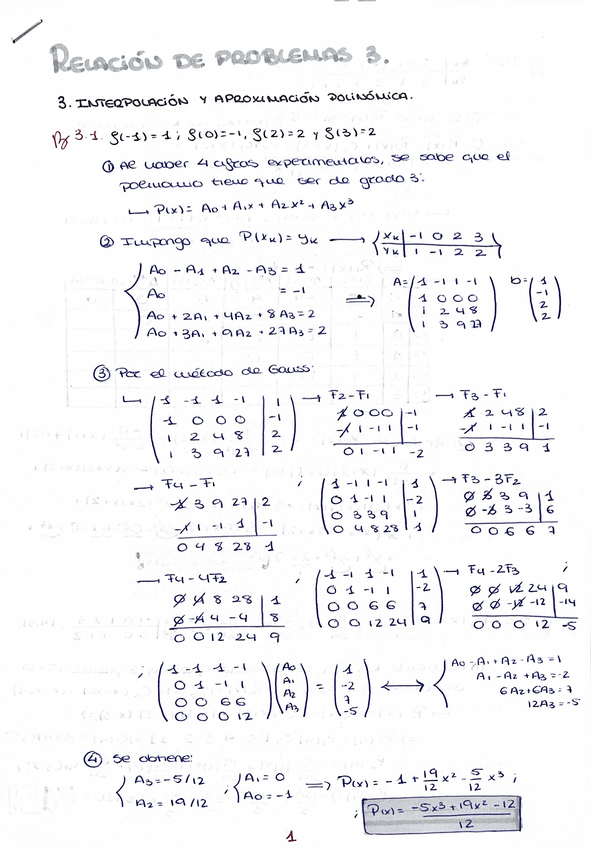 RELACIÓN DE PROBLEMAS 3.
3. INTERPOLACIÓN Y APROXIMACIÓN POLINÓMICA.
3.1. f(-1)=1; f(0)=-1, f(2)=2 y f(3)=2
① Al haber 4 cifras experimentales, se sabe que el
polinomio tiene que ser de grado 3:
↳ P(x)= A0 + A1x + A2x² + A3x³
② Impongo que P(xk)=yk → { xk | -1 0 2 3
yk | 1 -1 2 2 }
A0 - A1 + A2 - A3 = 1
A0 = -1
A0 + 2A1 + 4A2 + 8A3 = 2
A0 + 3A1 + 9A2 + 27A3 = 2
⇒ A= ( 1 -1 1 -1
1 0 0 0
1 2 4 8
1 3 9 27 )
b= ( 1
-1
2
2 )
③ Por el método de Gauss:
↳ ( 1 -1 1 -1 | 1
1 0 0 0 | -1
1 2 4 8 | 2
1 3 9 27 | 2 )
→ F2-F1
1 0 0 0 | -1
-1 1 -1 1 | -1
0 1 -1 1 -2
→ F3-F1
1 2 4 8 | 2
-1 1 -1 1 | -1
0 3 3 9 1
→ F4-F1
1 3 9 27 | 2
-1 1 -1 1 | -1
0 4 8 28 1
; ( 1 -1 1 -1 | 1
0 1 -1 1 | -2
0 3 3 9 | 1
0 4 8 28 | 1 )
→ F3-3F2
0 3 3 9 | 1
0 -3 3 -3 | 6
0 0 6 6 7
→ F4-4F2
0 4 8 28 | 1
0 -4 4 -4 | 8
0 0 12 24 9
; ( 1 -1 1 -1 | 1
0 1 -1 1 | -2
0 0 6 6 | 7
0 0 12 24 | 9 )
→ F4-2F3
0 0 12 24 | 9
0 0 -12 -12 | -14
0 0 0 12 -5
;
; ( 1 -1 1 -1
0 1 -1 1
0 0 6 6
0 0 0 12 )
( A0
A1
A2
A3 )
= ( 1
-2
7
-5 )
↔ { A0 - A1 + A2 - A3 = 1
A1 - A2 + A3 = -2
6A2 + 6A3 = 7
12A3 = -5
④ Se obtiene:
{ A3 = -5/12
A2 = 19/12
; { A1 = 0
A0 = -1
⇒ P(x) = -1 + 19/12 x² - 5/12 x³ ;
; P(x) = -5x³+19x²-12 / 12
1